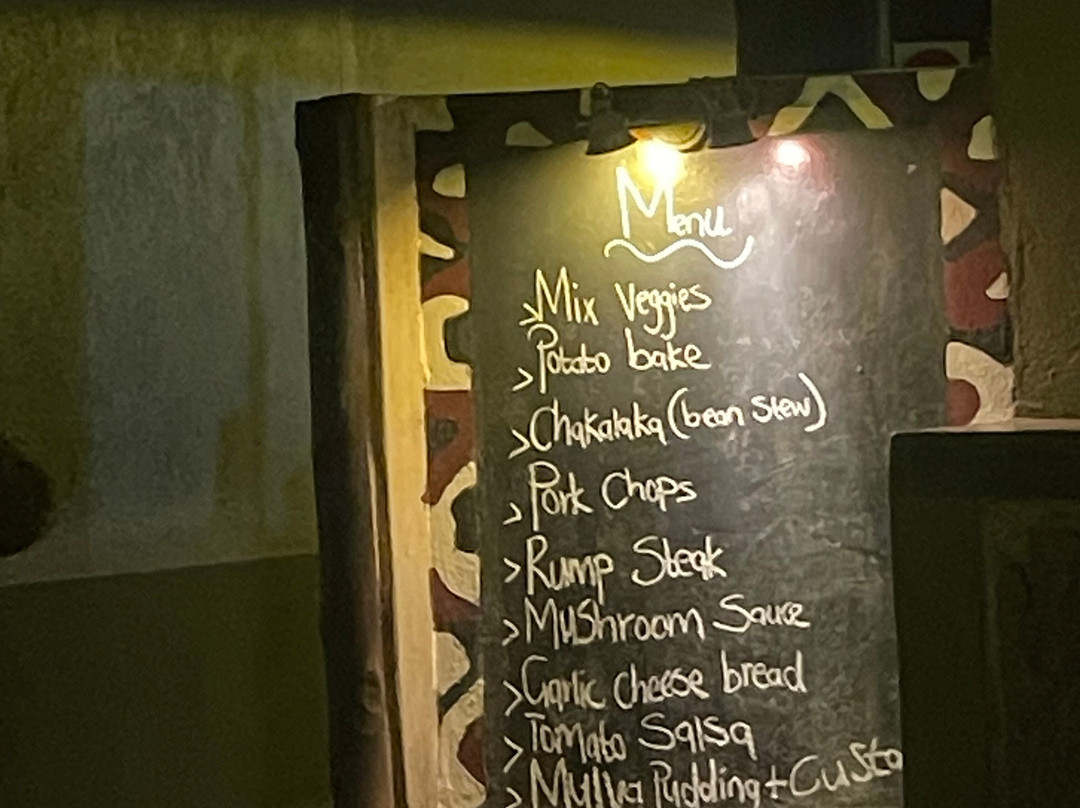 Menu
> Mix Veggies
> Potato bake
> Chakalaka (bean Stew)
> Pork Chops
> Rump Steak
> Mushroom Sauce
> Garlic cheese bread
> Tomato Salsa
> Mulva Pudding + Custo